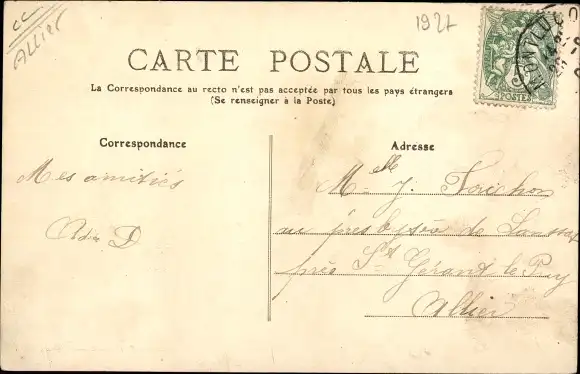 CC
Allier
1927
CARTE POSTALE
La Correspondance au recto n'est pas acceptée par tous les pays étrangers
(Se renseigner à la Poste)
POSTES
MONTLUCO
Correspondance
Mes amitiés
D
Adresse
Melle J.
au presbytère de
près St Gérant le Puy
Allier